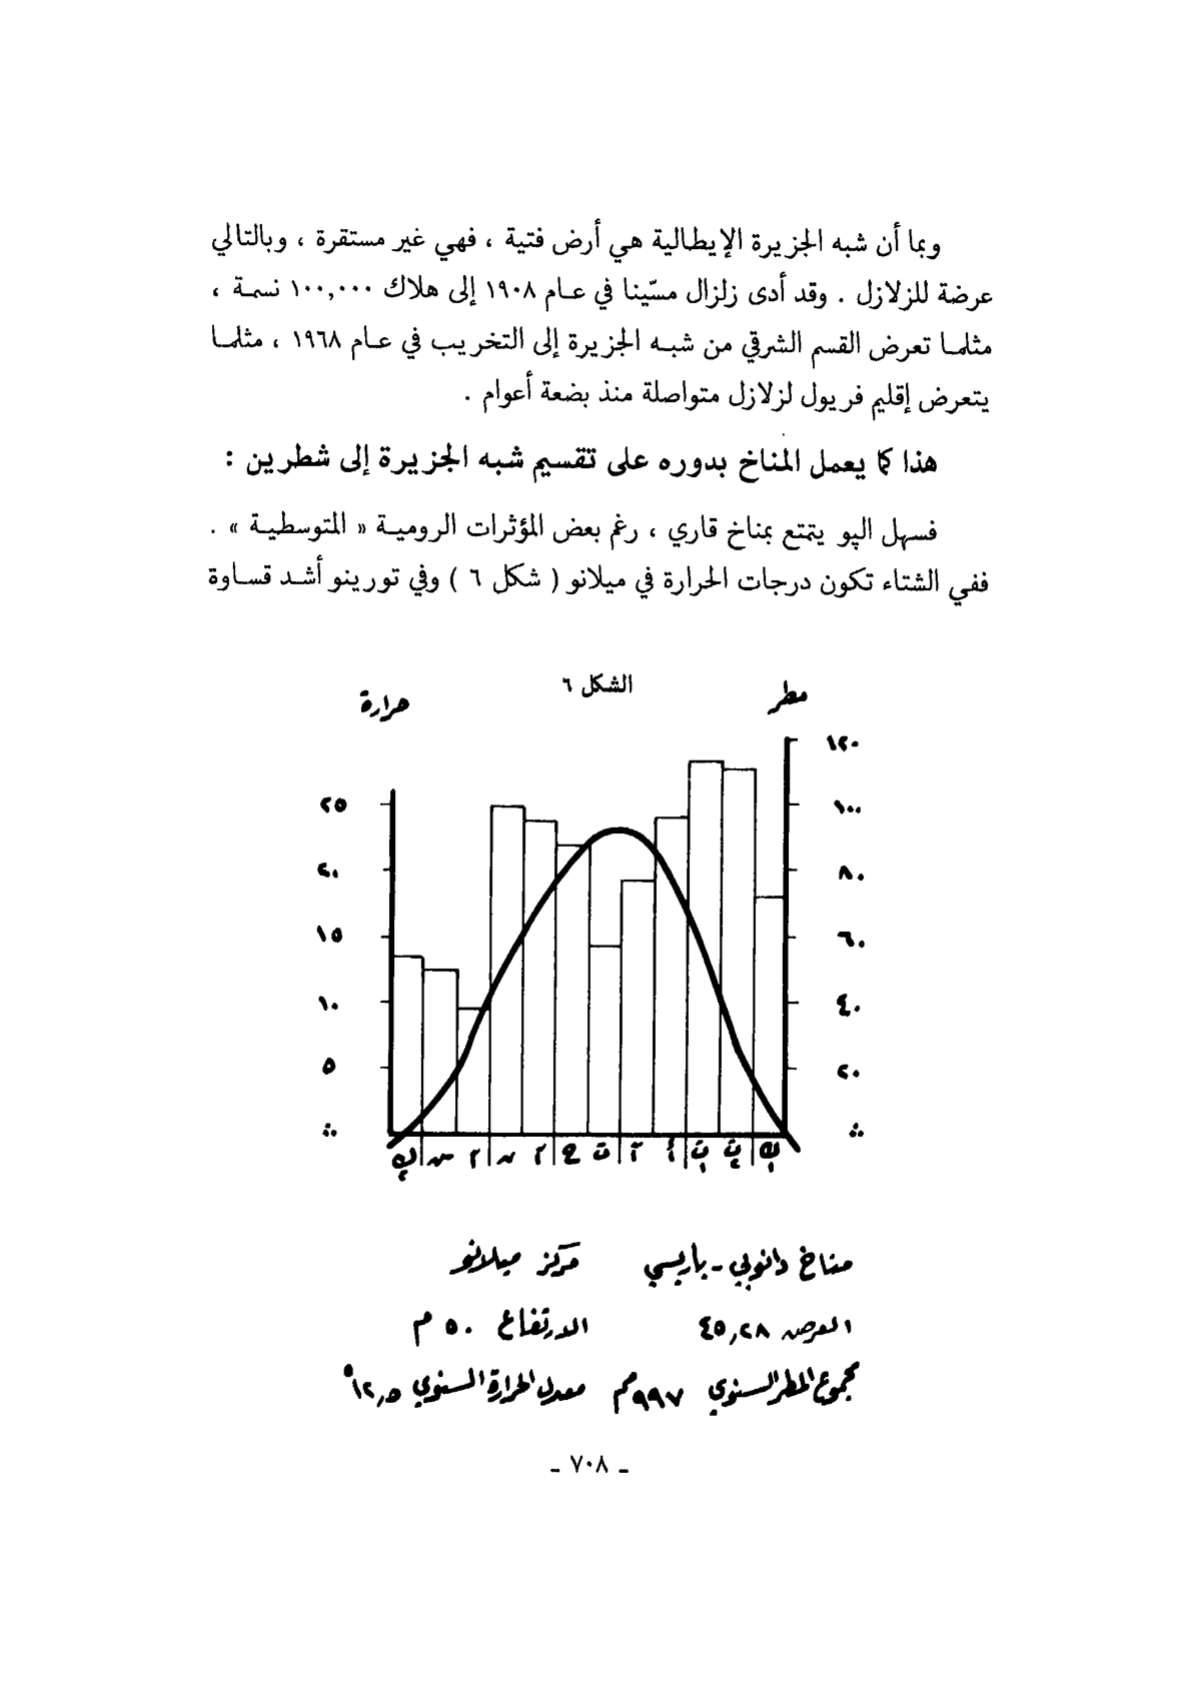 وبما أن شبه الجزيرة الإيطالية هي أرض فتية ، فهي غير مستقرة ، وبالتالي
عرضة للزلازل . وقد أدى زلزال مسّينا في عـام ١٩٠٨ إلى هلاك ١٠٠,٠٠٠ نسمـة ،
مثلمـا تعرض القسم الشرقي من شبـه الجزيرة إلى التخريب في عـام ١٩٦٨ ، مثلمـا
يتعرض إقليم فريول لزلازل متواصلة منذ بضعة أعوام .
هذا كما يعمل المناخ بدوره على تقسيم شبه الجزيرة إلى شطرين :
فسهل الپو يتمتع بمناخ قاري ، رغم بعض المؤثرات الروميـة « المتوسطيـة » .
ففي الشتاء تكون درجات الحرارة في ميلانو ( شكل ٦ ) وفي تورينو أشـد قسـاوة
الشكل ٦
مطر
حرارة
١٢٠
١٠٠
٨٠
٦٠
٤٠
٢٠
٢٥
٢٠
١٥
١٠
٥
ك٢ س م ن م ح ت آ أ ت١ ت٢ ك١
مناخ دانوبي - باريسي مركز ميلانو
العرض ٤٥,٢٨ الارتفاع ٥٠ م
مجموع المطر السنوي ٩٩٧ مم معدل الحرارة السنوي ١٢,٥°
ـ ٧٠٨ ـ